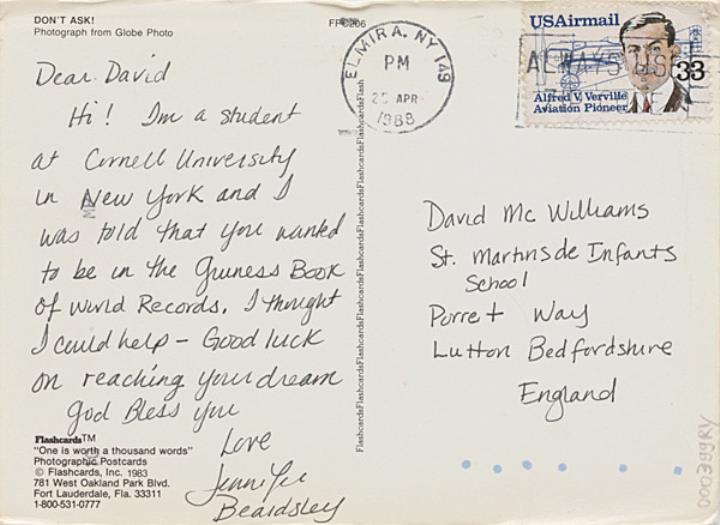 DON'T ASK!
Photograph from Globe Photo
FPC206
Dear David
Hi! I'm a student
at Cornell University
in New York and I
was told that you wanted
to be in the Guness Book
of World Records. I thought
I could help - Good luck
on reaching your dream
God Bless you
Love
Jennifer
Beardsley
Flashcards™
"One is worth a thousand words"
Photographic Postcards
© Flashcards, Inc. 1983
781 West Oakland Park Blvd.
Fort Lauderdale, Fla. 33311
1-800-531-0777
FlashcardsFlashcardsFlashcardsFlashcardsFlashcardsFlashcardsFlashcardsFlashcardsFlash
ELMIRA, NY 149
PM
25 APR
1988
ALWAYS USE
USAirmail
33
Alfred V. Verville
Aviation Pioneer
David Mc Williams
St. Martinsde Infants
School
Porret Way
Lutton Bedfordshire
England